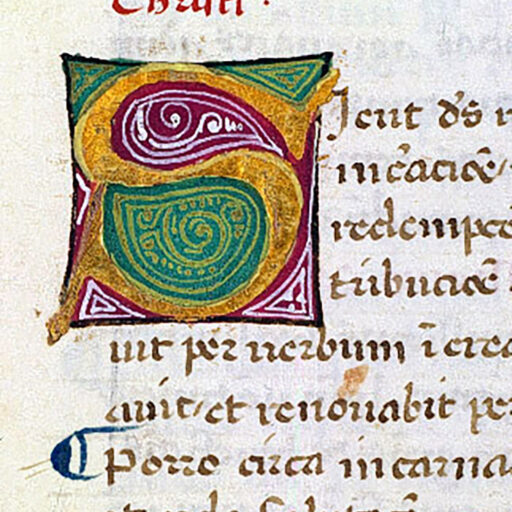 Christi.
Sicut d̄s
incr̄acioē/
redempcō
tribucioē
uit per uerbum ī crea
auit/et renouabit per
¶ Porro circa incarna